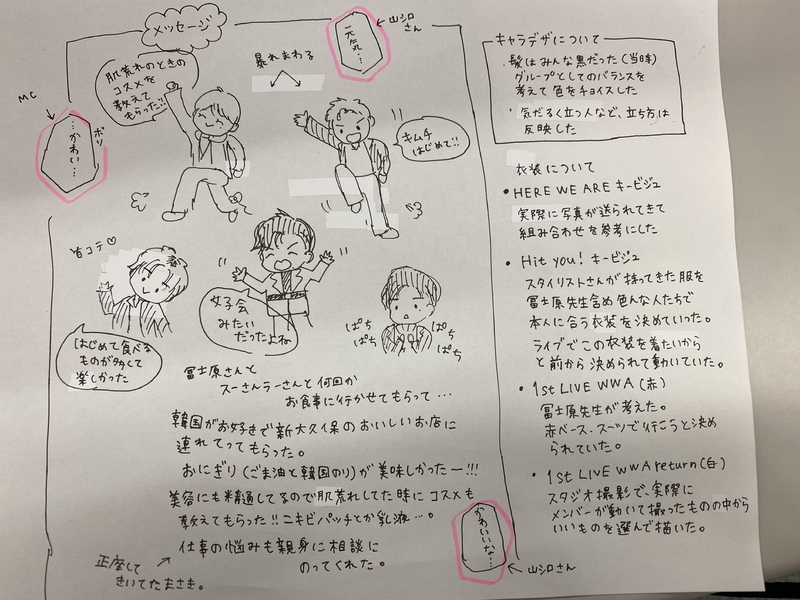 メッセージ
元気…
山シロさん
肌荒れのときの
コスメを
教えて
もらった!!
暴れまわる
MC
ボソ…
…かわい…
キムチ
はじめて!!
首コテ♡
はじめて食べる
ものが多くて
楽しかった
女子会
みたい
だったよね
ぱち
ぱち
ぱち
ぱち
冨士原さんと
スーさんラーさんと何回か
お食事に行かせてもらって…
韓国がお好きで新大久保のおいしいお店に
連れてってもらった。
おにぎり(ごま油と韓国のり)が美味しかったー!!!
美容にも精通してるので肌荒れしてた時にコスメも
教えてもらった!!ニキビパッチとか乳液…。
仕事の悩みも親身に相談に
のってくれた。
正座して
きいてたまさき。
かわいいな…
山シロさん
キャラデザについて
・髪はみんな黒だった(当時)
グループとしてのバランスを
考えて色をチョイスした
・気だるく立つ人など、立ち方は
反映した
衣装について
・HERE WE ARE キービジュ
実際に写真が送られてきて
組み合わせを参考にした
・Hit you! キービジュ
スタイリストさんが持ってきた服を
冨士原先生含め色んな人たちで
本人に合う衣装を決めていった。
ライブでこの衣装を着たいから
と前から決められて動いていた。
・1st LIVE WWA(赤)
冨士原先生が考えた。
赤ベース、スーツで行こうと決め
られていた。
・1st LIVE WWA return(白)
スタジオ撮影で、実際に
メンバーが動いて撮ったものの中から
いいものを選んで描いた。